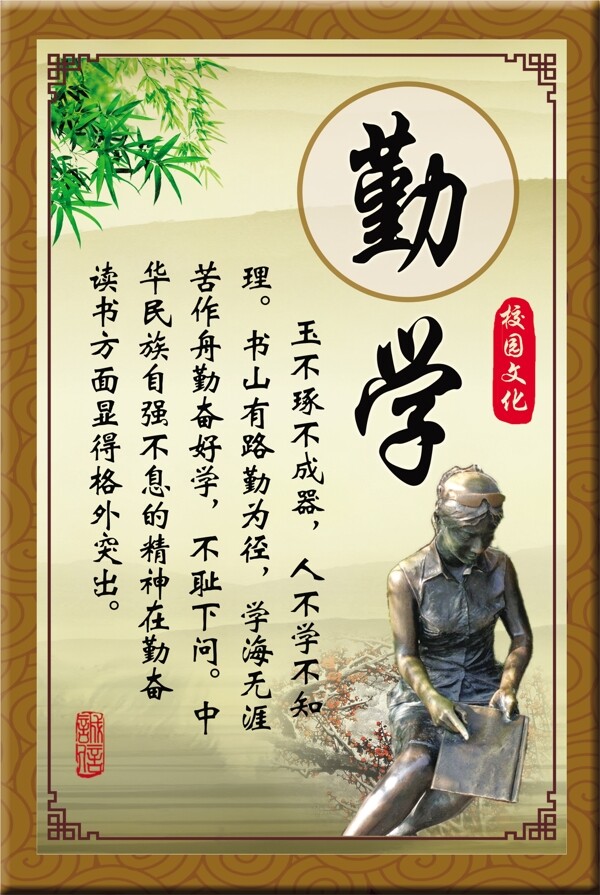 勤学
校园文化
玉不琢不成器，人不学不知
理。书山有路勤为径，学海无涯
苦作舟勤奋好学，不耻下问。中
华民族自强不息的精神在勤奋
读书方面显得格外突出。
誠信